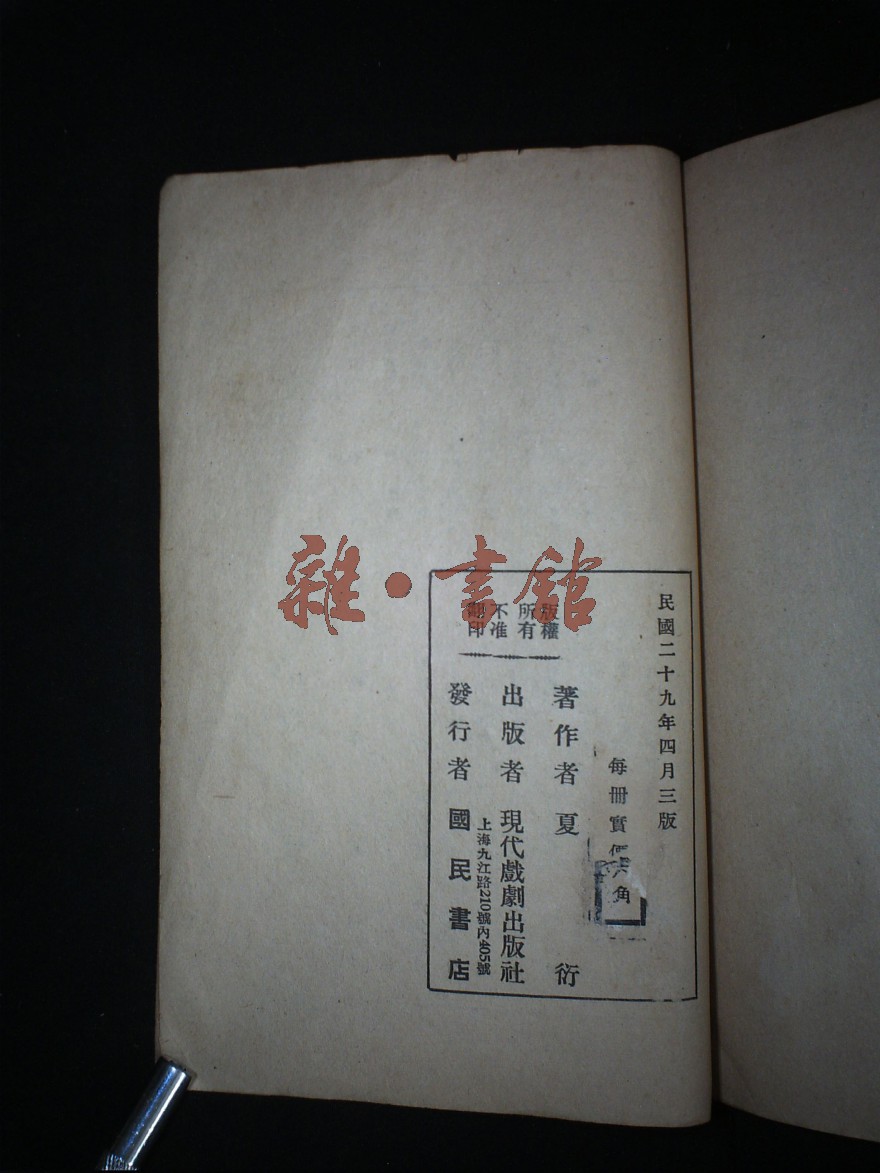 雜·書館
民國二十九年四月三版
每冊實價六角
版權所有
不准翻印
著作者 夏衍
出版者 現代戲劇出版社
上海九江路210號內405號
發行者 國民書店